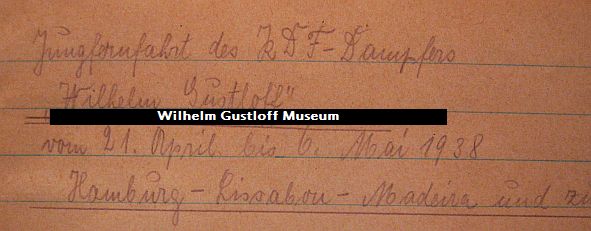 Jungfernfahrt des KDF-Dampfers
"Wilhelm Gustloff"
Wilhelm Gustloff Museum
vom 21. April bis 6. Mai 1938
Hamburg - Lissabon - Madeira und zu